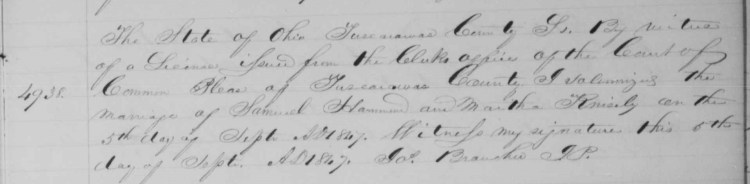 The State of Ohio Tuscarawas County Ss. By virtue
of a License issued from the Clerks office of the Court of
4938. Common Pleas of Tuscarawas County I solemnized the
marriage of Samuel Hammond and Martha Knisely on the
5th day of Sept. AD1847. Witness my signature this 6th
day of Sept. AD1847. JP.